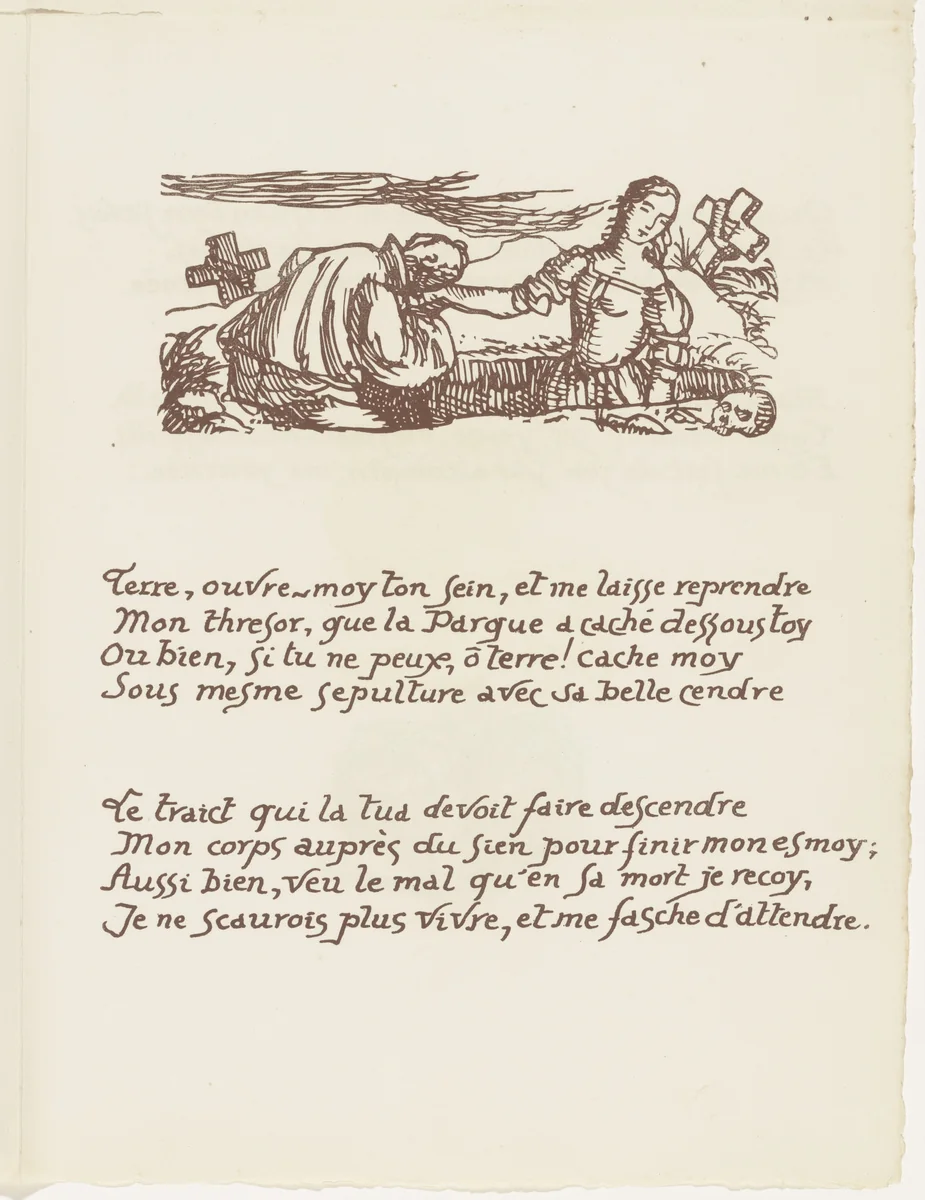 Terre, ouvre-moy ton sein, et me laisse reprendre
Mon thresor, que la Parque a caché dessous toy
Ou bien, si tu ne peux, ô terre! cache moy
Sous mesme sepulture avec sa belle cendre
Le traict qui la tua devoit faire descendre
Mon corps auprès du sien pour finir mon esmoy;
Aussi bien, veu le mal qu'en sa mort je recoy,
Je ne scaurois plus vivre, et me fasche d'attendre.